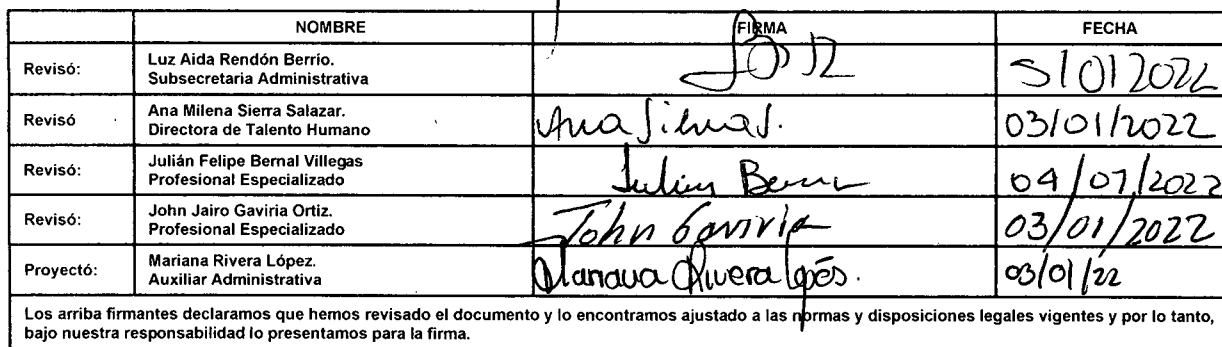 NOMBRE FIRMA FECHA
Revisó: Luz Aida Rendón Berrío.
Subsecretaria Administrativa
5/01/2022
Revisó Ana Milena Sierra Salazar.
Directora de Talento Humano
Ana
03/01/2022
Revisó: Julián Felipe Bernal Villegas
Profesional Especializado
Julian
04/01/2022
Revisó: John Jairo Gaviria Ortiz.
Profesional Especializado
John Gaviria
03/01/2022
Proyectó: Mariana Rivera López.
Auxiliar Administrativa
Mariana Rivera López.
03/01/22
Los arriba firmantes declaramos que hemos revisado el documento y lo encontramos ajustado a las normas y disposiciones legales vigentes y por lo tanto,
bajo nuestra responsabilidad lo presentamos para la firma.